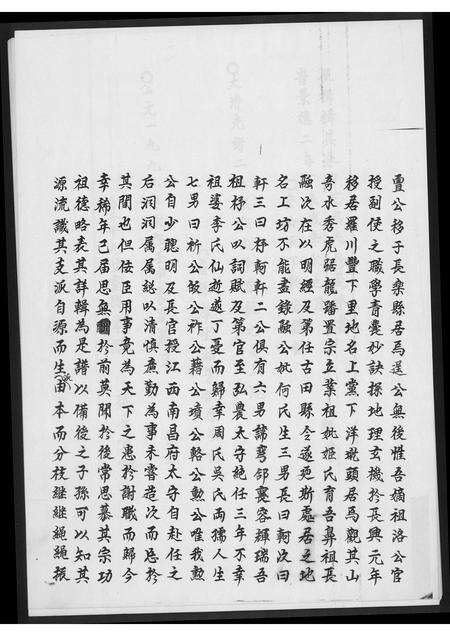 賈公移子長樂縣居焉送公無後惟吾嫡祖洛公官
授副使之職學青囊妙訣探地理玄機於長興元年
移居羅川豐下里地名上黨下洋墘頭居焉觀其山
奇水秀虎踞龍蟠置宗立業祖妣姬氏育吾鼻祖長
融次在以明經及第任古田縣令遂更斯處居之地
名工坊不能盡錄融公妣何氏生三男長曰軻次曰
軒三曰杼軻軒二公俱有六男諱騫邻襲容輝瑞吾
祖杼公以詞賦及第官至弘農太守純任三年不幸
祖婆李氏仙逝遂丁憂而歸幸周氏吳氏両孺人生
七男曰祈公皈公祚公藉公墳公輅公勲公唯我勲
公自少聰明及長官授江西南昌府太守自赴任之
后洞洞属属総以清慎燕勤為事未嘗造次而忘於
其間也但佞臣用事竟為天下之患於謝職而歸今
幸稀年己届思無於前莫聞於後常思慕其宗功
祖德略表其詳輯為是譜以備後之子孫可以知其
源流識其支派自源而生派由本而分枝継継繩繩振